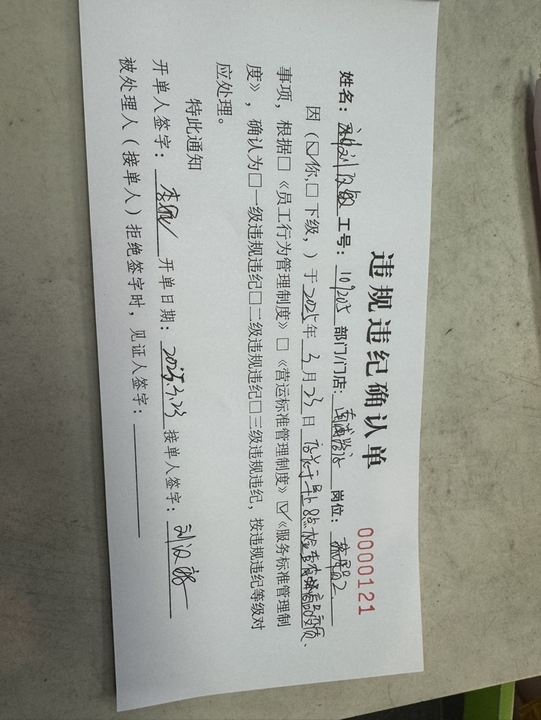 违规违纪确认单
0000121
姓名：刘汉敏 工号：109205 部门/门店：岗位：
因（☑你,□下级，）于2025年3月23日
事项，根据□《员工行为管理制度》□《营运标准管理制度》☑《服务标准管理制
度》，确认为□一级违规违纪□二级违规违纪□三级违规违纪，按违规违纪等级对
应处理。
特此通知
开单人签字：开单日期：2025.3.23 接单人签字：刘汉敏
被处理人（接单人）拒绝签字时，见证人签字：